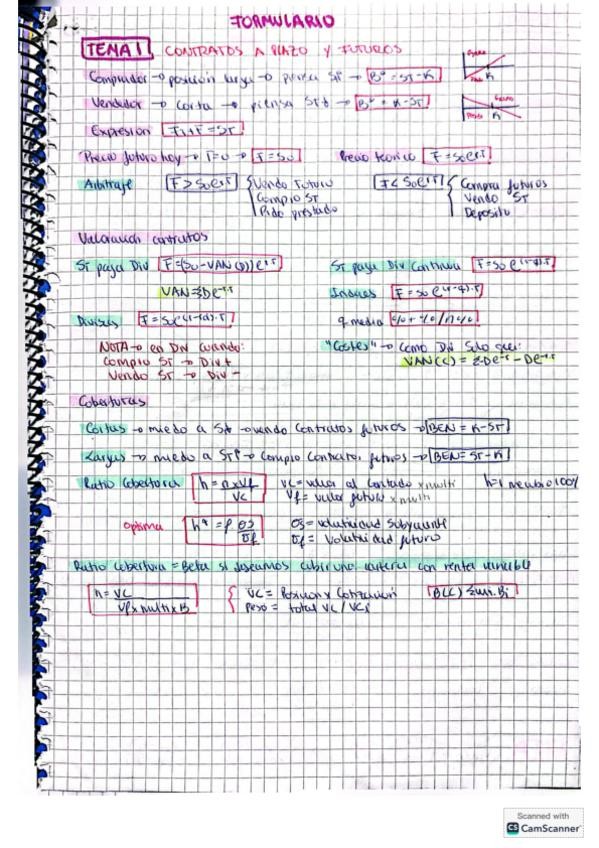 FORMULARIO
TEMA 1 CONTRATOS A PLAZO Y FUTUROS
Comprador → posición larga → piensa ST↑ → Bº = ST - K
Vendedor → corta → piensa ST↓ → Bº = K - ST
K
K
Expresión Ft,T = ST
Precio futuro hoy → T=0 → F = S0 Precio teórico F = S0e^r.T
Arbitraje F > S0e^r.T { Vendo Futuro F < S0e^r.T { Compra futuros
Compro ST Vendo ST
Pido prestado Deposito
Valoración contratos
ST paga Div F = (S0 - VAN(D))e^r.T ST paga Div Continua F = S0e^(r-q).T
VAN = ΣDe^-r.T Índices F = S0e^(r-q).T
Divisas q media
NOTA → en Div cuando: "Costes" → Como Div solo que:
Compro ST → Div + VAN(C) = ΣDe^-r - De^-r.T
Vendo ST → Div -
Coberturas
Cortas → miedo a S↓ → vendo contratos futuros → BEN = K - ST
Largas → miedo a ST↑ → Compro Contratos futuros → BEN = ST - K
Ratio cobertura h = n x Vf / VC VC = valor al contado x multi h=1 neutro 100%
Vf = valor futuro x multi
Óptima h* = ρ σs / σf σs = volatilidad Subyacente
σf = Volatilidad futuro
Ratio Cobertura = Beta si deseamos cubrir una cartera con renta variable
n = VC / Vf x multi x B { VC = Posición x Cotización B(C) Σwi.Bi
Peso = total VC / VCi
Scanned with
CS CamScanner